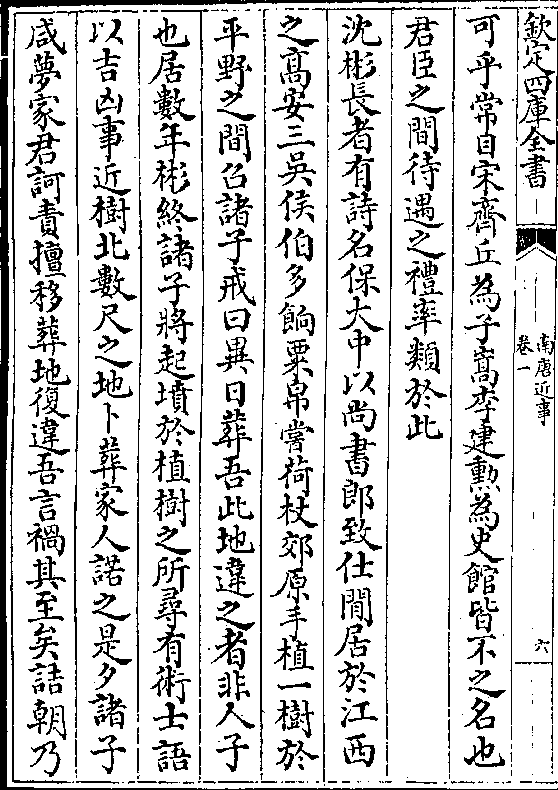 欽定四庫全書
南唐近事
卷一
六
可乎常目宋齊丘為子嵩李建勲為史館皆不之名也
君臣之間待遇之禮率類於此
沈彬長者有詩名保大中以尚書郎致仕閒居於江西
之髙安三吳侯伯多餉粟帛嘗荷杖郊原手植一樹於
平野之間召諸子戒曰異日葬吾此地違之者非人子
也居數年彬終諸子將起墳於植樹之所尋有術士語
以吉凶事近樹北數尺之地卜葬家人諾之是夕諸子
咸夢家君訶責擅移葬地復違吾言禍其至矣詰朝乃